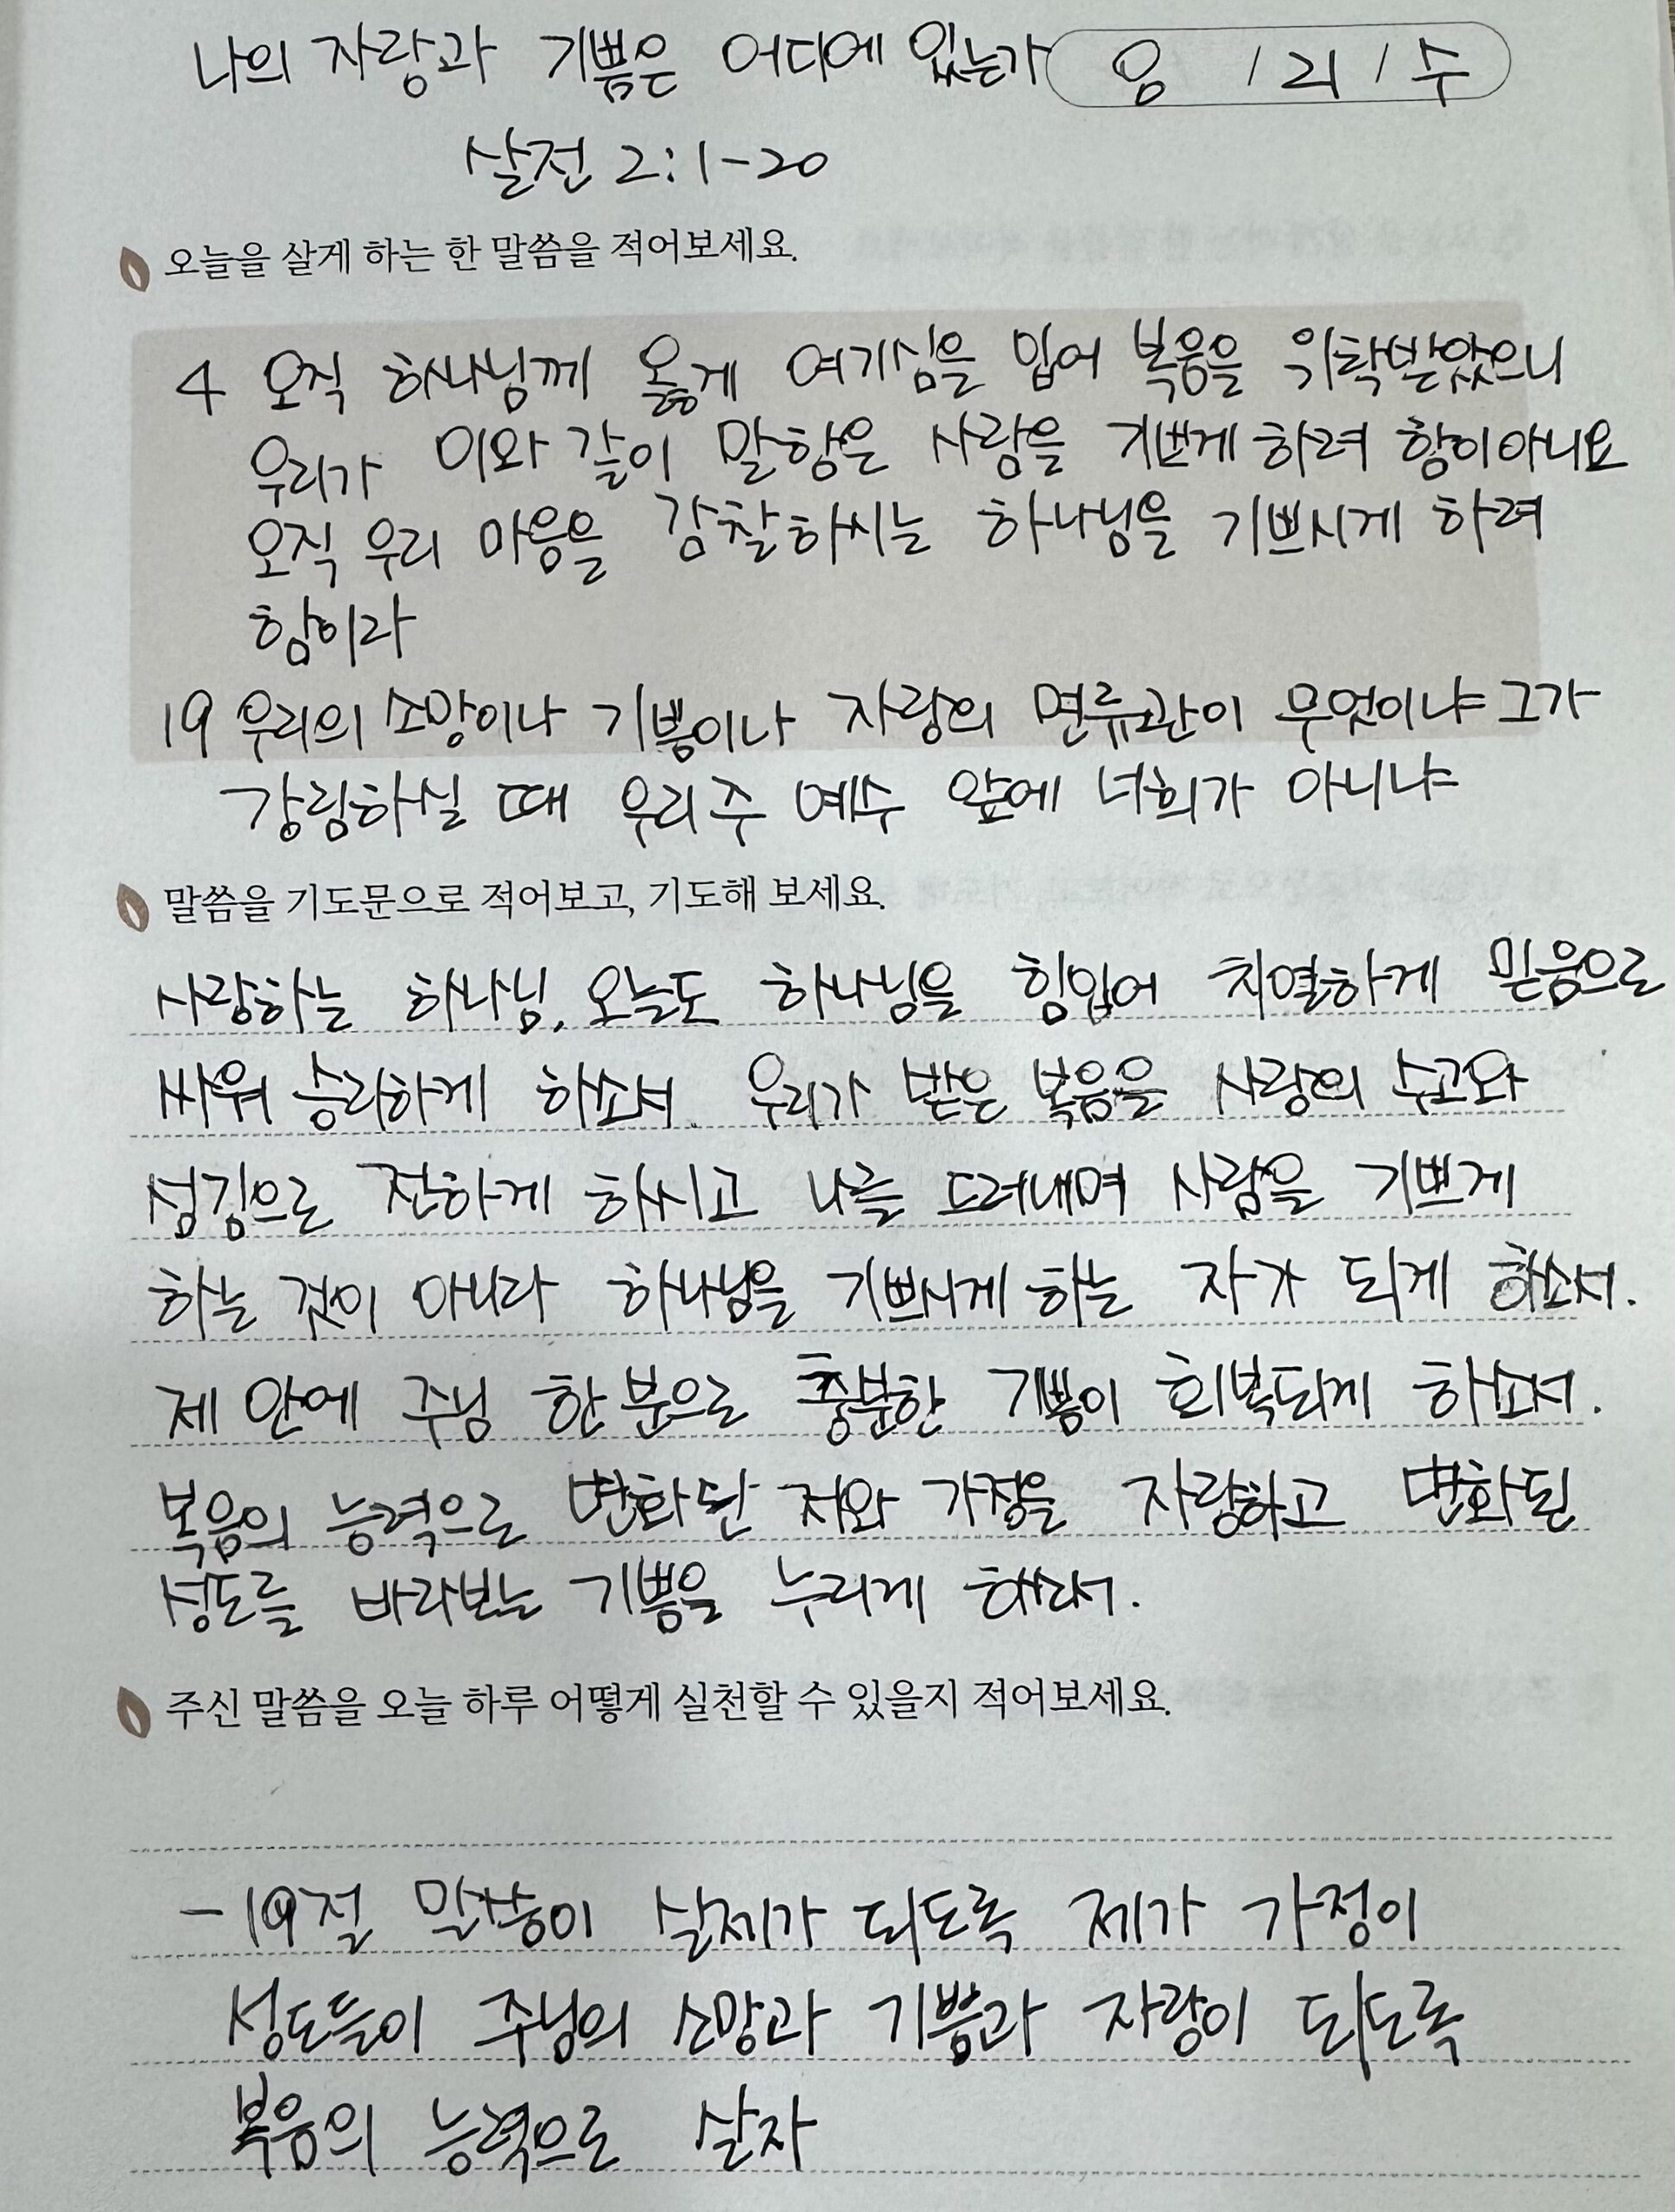 나의 자랑과 기쁨은 어디에 있는가
살전 2:1-20
오늘을 살게 하는 한 말씀을 적어보세요.
4 오직 하나님께 옳게 여기심을 입어 복음을 위탁받았으니
우리가 이와 같이 말함은 사람을 기쁘게 하려 함이 아니요
오직 우리 마음을 감찰하시는 하나님을 기쁘시게 하려
함이라
19 우리의 소망이나 기쁨이나 자랑의 면류관이 무엇이냐 그가
강림하실 때 우리 주 예수 앞에 너희가 아니냐
말씀을 기도문으로 적어보고, 기도해 보세요.
사랑하는 하나님, 오늘도 하나님을 힘입어 치열하게 믿음으로
싸워 승리하게 하소서. 우리가 받은 복음을 사랑의 수고와
섬김으로 전하게 하시고 나를 드러내며 사람을 기쁘게
하는 것이 아니라 하나님을 기쁘시게 하는 자가 되게 하소서.
제 안에 주님 한 분으로 충분한 기쁨이 회복되게 하소서.
복음의 능력으로 변화된 저와 가정을 자랑하고 변화된
성도를 바라보는 기쁨을 누리게 하소서.
주신 말씀을 오늘 하루 어떻게 실천할 수 있을지 적어보세요.
- 19절 말씀이 실제가 되도록 제가 가정이
성도들이 주님의 소망과 기쁨과 자랑이 되도록
복음의 능력으로 살자